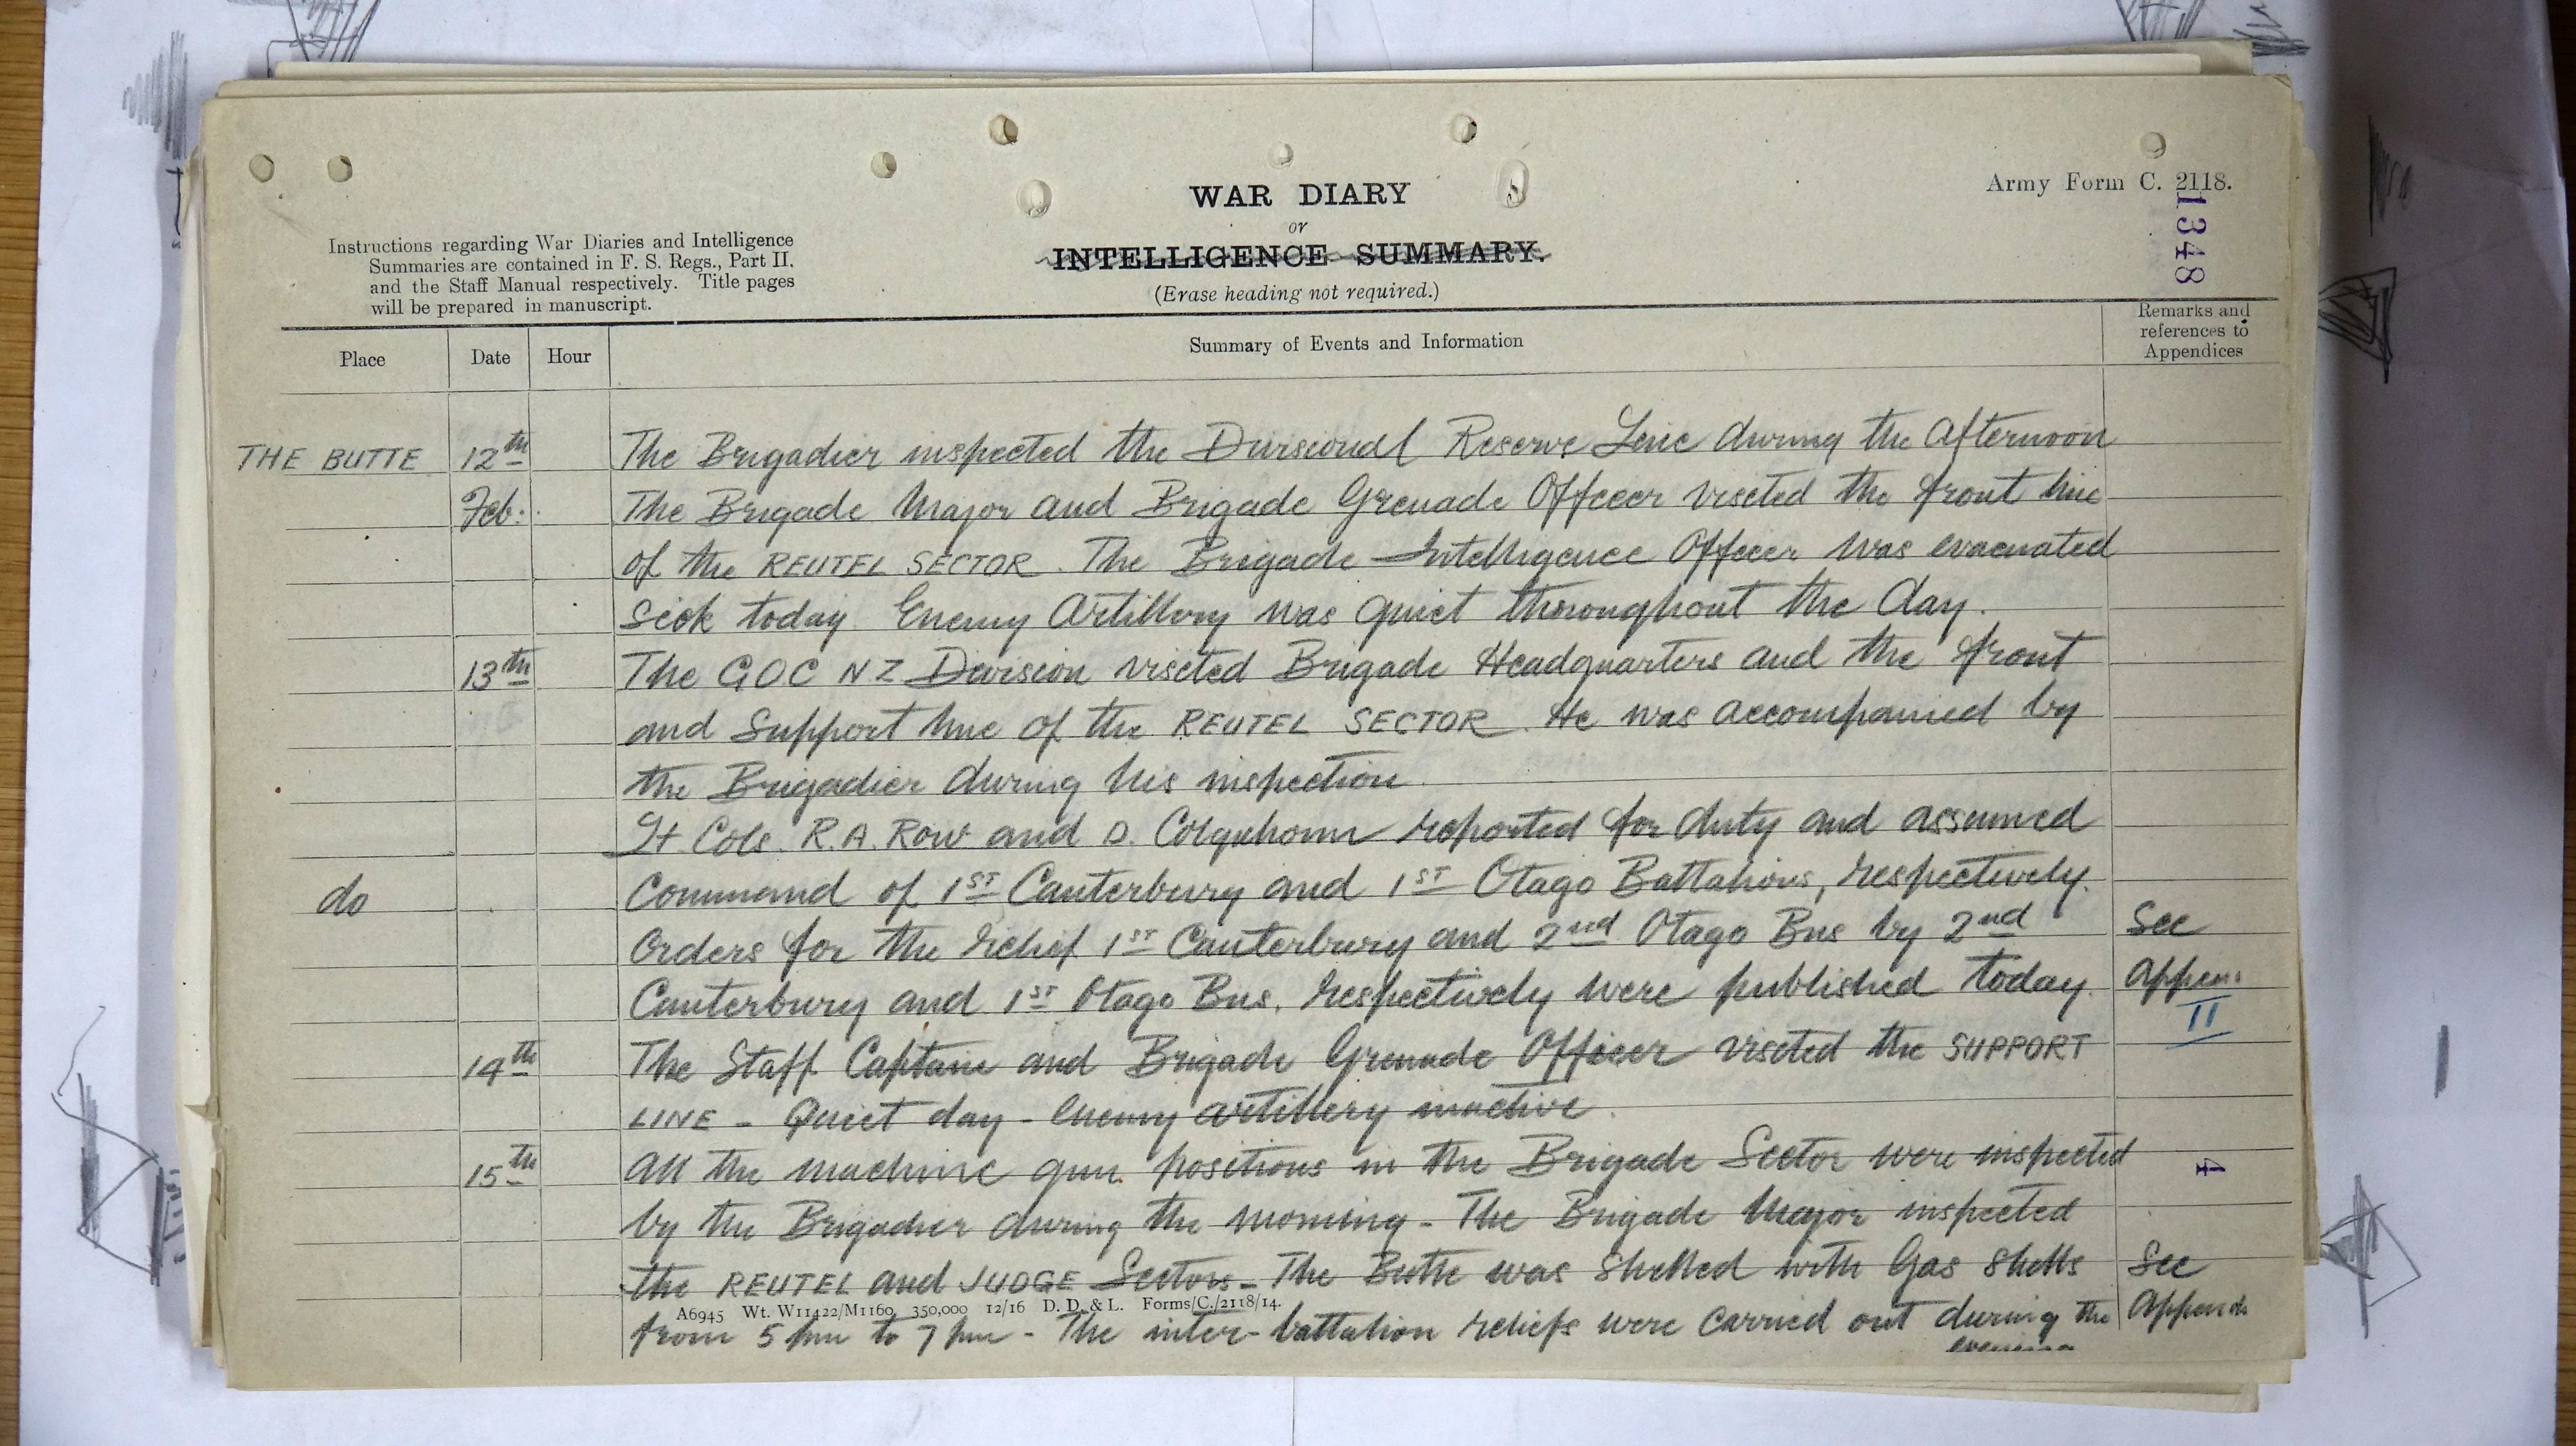 Army Form C. 2118.
1348
WAR DIARY
or
INTELLIGENCE SUMMARY.
(Erase heading not required.)
Instructions regarding War Diaries and Intelligence
Summaries are contained in F. S. Regs., Part II.
and the Staff Manual respectively. Title pages
will be prepared in manuscript.
Place Date Hour Summary of Events and Information Remarks and
references to
Appendices
THE BUTTE 12th The Brigadier inspected the Divisional Reserve Line during the afternoon
Feb. The Brigade Major and Brigade Grenade Officer visited the front line
of the REUTEL SECTOR. The Brigade Intelligence Officer was evacuated
sick today. Enemy Artillery was quiet throughout the day.
13th The GOC NZ Division visited Brigade Headquarters and the front
and Support line of the REUTEL SECTOR. He was accompanied by
the Brigadier during his inspection.
Lt Cols. R.A. Row and D. Colquhoun reported for duty and assumed
do Command of 1ST Canterbury and 1ST Otago Battalions, respectively.
Orders for the relief 1ST Canterbury and 2nd Otago Bns by 2nd See
Canterbury and 1ST Otago Bns. respectively were published today. Appen:
II
14th The Staff Captain and Brigade Grenade Officer visited the SUPPORT
LINE - Quiet day - Enemy artillery inactive.
15th All the machine gun positions in the Brigade Sector were inspected 4
by the Brigadier during the morning - The Brigade Major inspected
the REUTEL and JUDGE Sectors - The Butte was shelled with Gas shells See
A6945 Wt. W11422/M1160 350,000 12/16 D. D. & L. Forms/C./2118/14.
from 5 pm to 7 pm - The inter-battalion reliefs were carried out during the Appendx
evening